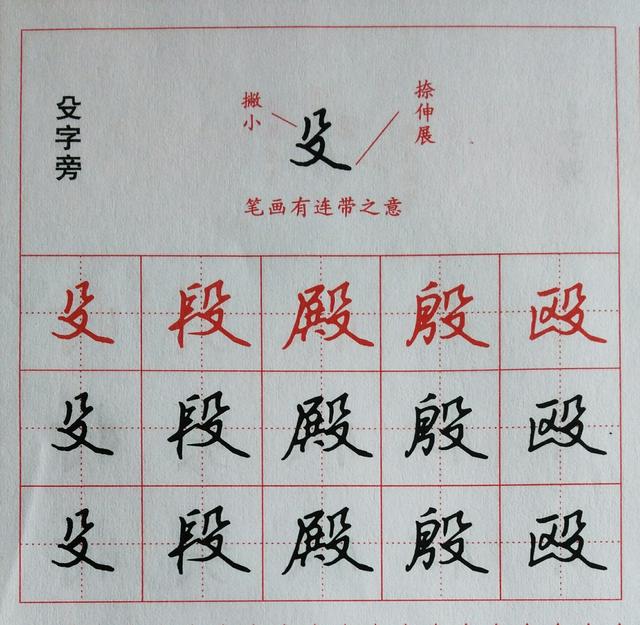 殳字旁
撇小
殳
捺伸展
笔画有连带之意
殳 段 殿 殷 殴
殳 段 殿 殷 殴
殳 段 殿 殷 殴